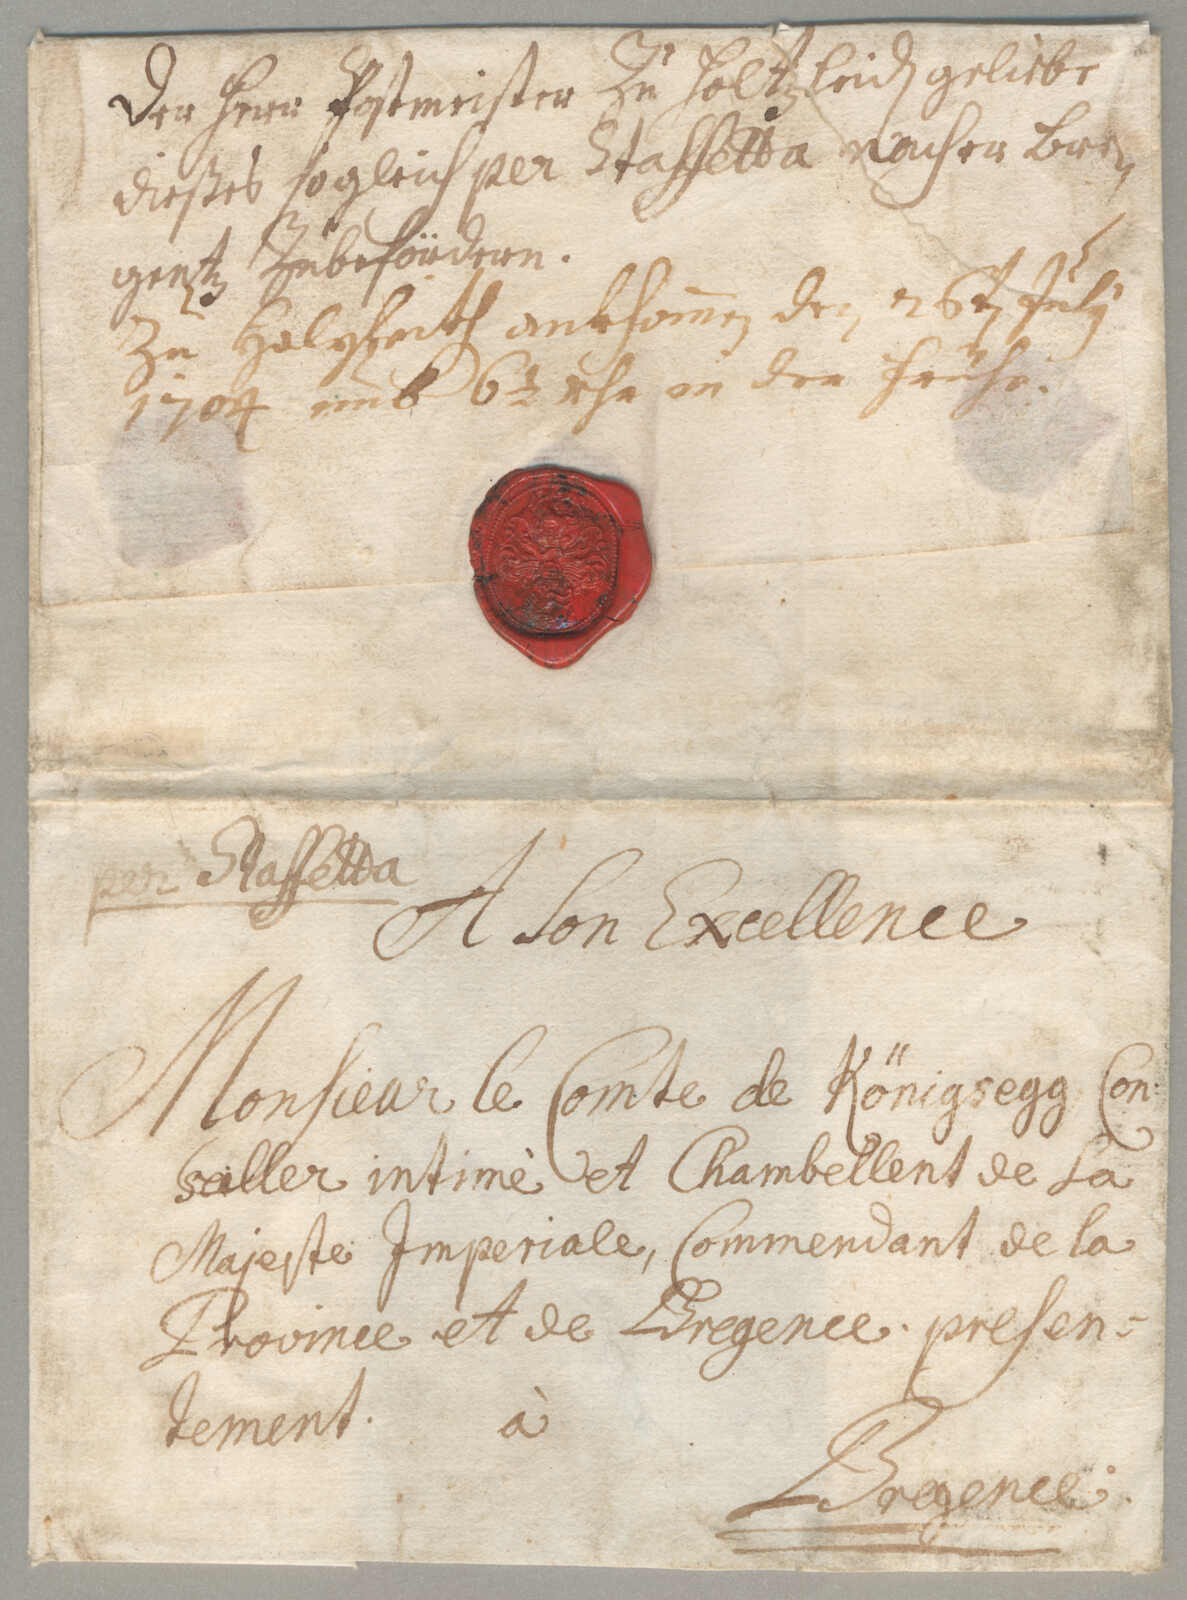 Der Herr Postmeister Zu Holtzleidh geliebe
dießes sogleich per Staffetta nacher Bre,
gentz Zubefördern.
Zu Holtzleith ankhomen den 26t July
1704 umb 6½ uhr in der frühe.
per Staffetta
A Son Excellence
Monsieur le Comte de Königsegg Con:
seiller intimè et Chambellent de Sa
Majeste Imperiale, Commendant de la
Province et de Bregence presen=
tement. à
Bregence.